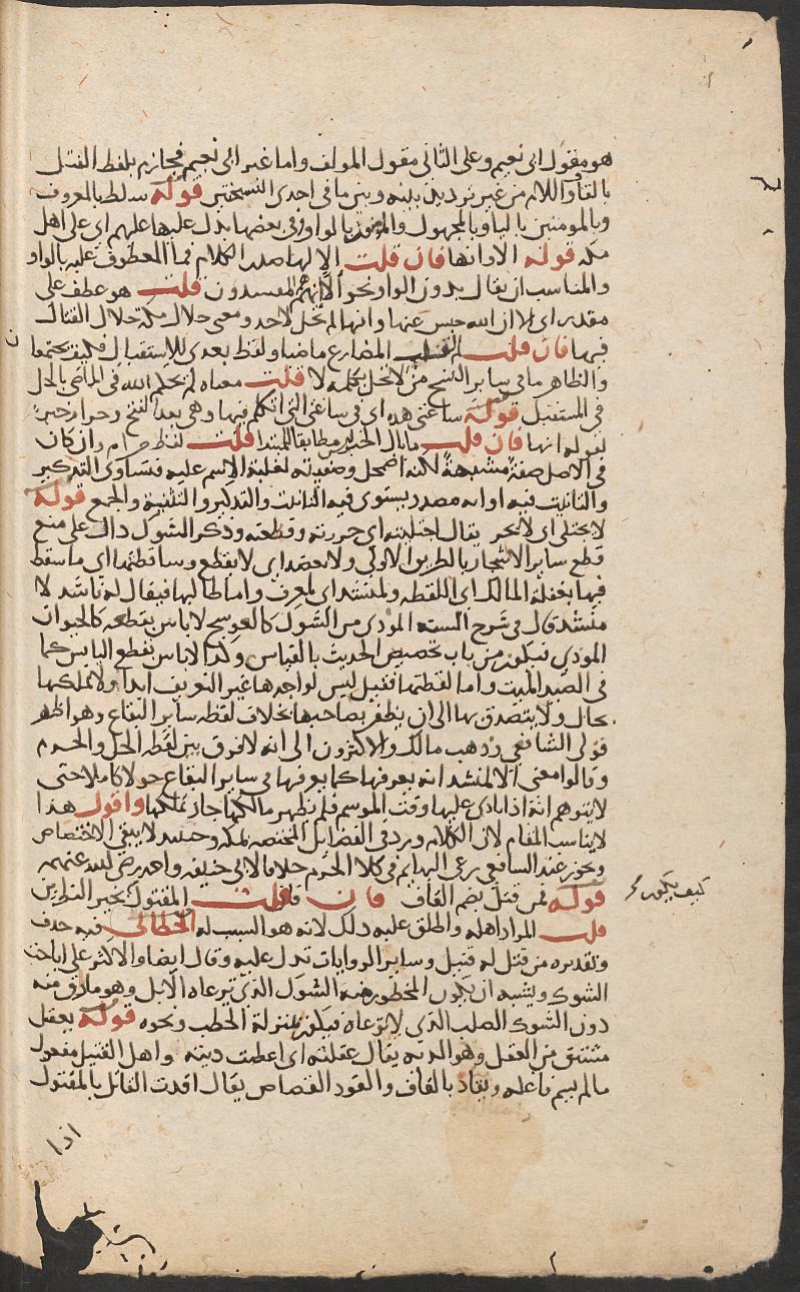 هو مقول ابى نعيم وعلى الثانى مقول المولف واما غير ابى نعيم فجازم بلفظ القتل
بالقاف واللام من غير ترديد بينه وبين ما فى احدى النسختين قوله سلط بالمعروف
وبالمومنين باليا وبالمجهول والمومنون بالواو وفى بعضها بدل عليها عليهم اى على اهل
مكه قوله الا وانها فان قلت الا لها صدر الكلام فما المعطوف عليه بالواو
والمناسب ان يقال بدون الواو نحو الا انهم هم المفسدون قلت هو عطف على
مقدر اى الا ان الله حبس عنها وانها لم تحل لاحد ومعنى حلال مكة حلال القتال
فيها فان قلت لم تقلب المضارع ماضيا ولفظ بعدى للاستقبال فكيف يجتمعا
والظاهر ما فى ساير النسخ من لا تحل بكلمه لا قلت معناه لم يحكم الله فى الماضى بالحل
فى المستقبل قوله ساعتى هذه اى فى ساعتى التى اتكلم فيها وهى بعد الفتح وحرام خبر
لقوله انها فان قلت ما بال الخبر ليس مطابقا للمبتدا قلت لفظ حرام وان كان
فى الاصل صفة مشبهة لكنه اضمحل وصفيته لغلبة الاسم عليه فتساوى التذكير
والتانيث فيه او انه مصدر يستوى فيه التانيث والتذكير والتثنية والجمع قوله
لا يختلى اى لا يجز يقال اختليته اى جززته وقطعته وذكر الشوك دال على منع
قطع ساير الاشجار بالطريق الاولى ولا يعضد اى لا يقطع وساقطتها اى ما سقط
فيها بغفلة المالك اى اللقطه ولمنشد اى لمعرف واما طالبها فيقال له ناشد لا
منشد قال فى شرح السنه الموذى من الشوك كالعوسج لا باس بقطعه كالحيوان
الموذى فيكون من باب تخصيص الحديث بالقياس وكذا لا باس بقطع اليابس كما
فى الصيد الميت واما لقطتها فقيل ليس لواجدها غير التعريف ابدا ولا يملكها
بحال ولا يتصدق بها الى ان يظفر بصاحبها بخلاف لقطه ساير البقاع وهو اظهر
قولى الشافعى وذهب مالك والاكثرون الى انه لا فرق بين لقطه الحل والحرم
وقالوا معنى الا لمنشد انه يعرفها كما يعرفها فى ساير البقاع حولا كاملا حتى
لا يتوهم انه اذا نادى عليها وقت الموسم فلم يظهر مالكها جاز تملكها واقول هذا
لا يناسب المقام لان الكلام ورد فى الفضايل المختصه بمكه وحينئذ لا يبقى الاختصاص
ويجوز عند الشافعى رعى البهايم فى كلا الحرم خلافا لابى حنيفه واحمد رضى الله عنهم
قوله فمن قتل بضم القاف فان قلت المقتول يخير النظرين
كيف يكون
قلت المراد اهله واطلق عليه ذلك لانه هو السبب له الخطابى فيه حذف
وتقديره من قتل له قتيل وساير الروايات تدل عليه وقال ايضا والاكثر على اباحت
الشوك ويشبه ان يكون المحظور منه الشوك الذى ترعاه الابل وهو مارق منه
دون الشوك الصلب الذى لا ترعاه فيكون بمنزلة الحطب ونحوه قوله يعقل
مشتق من العقل وهو الديه يقال عقلته اى اعطيت ديته واهل القتيل مفعول
ما لم يسم فاعله ويقاد بالقاف والقود القصاص يقال اقدت القاتل بالمقتول
اذا